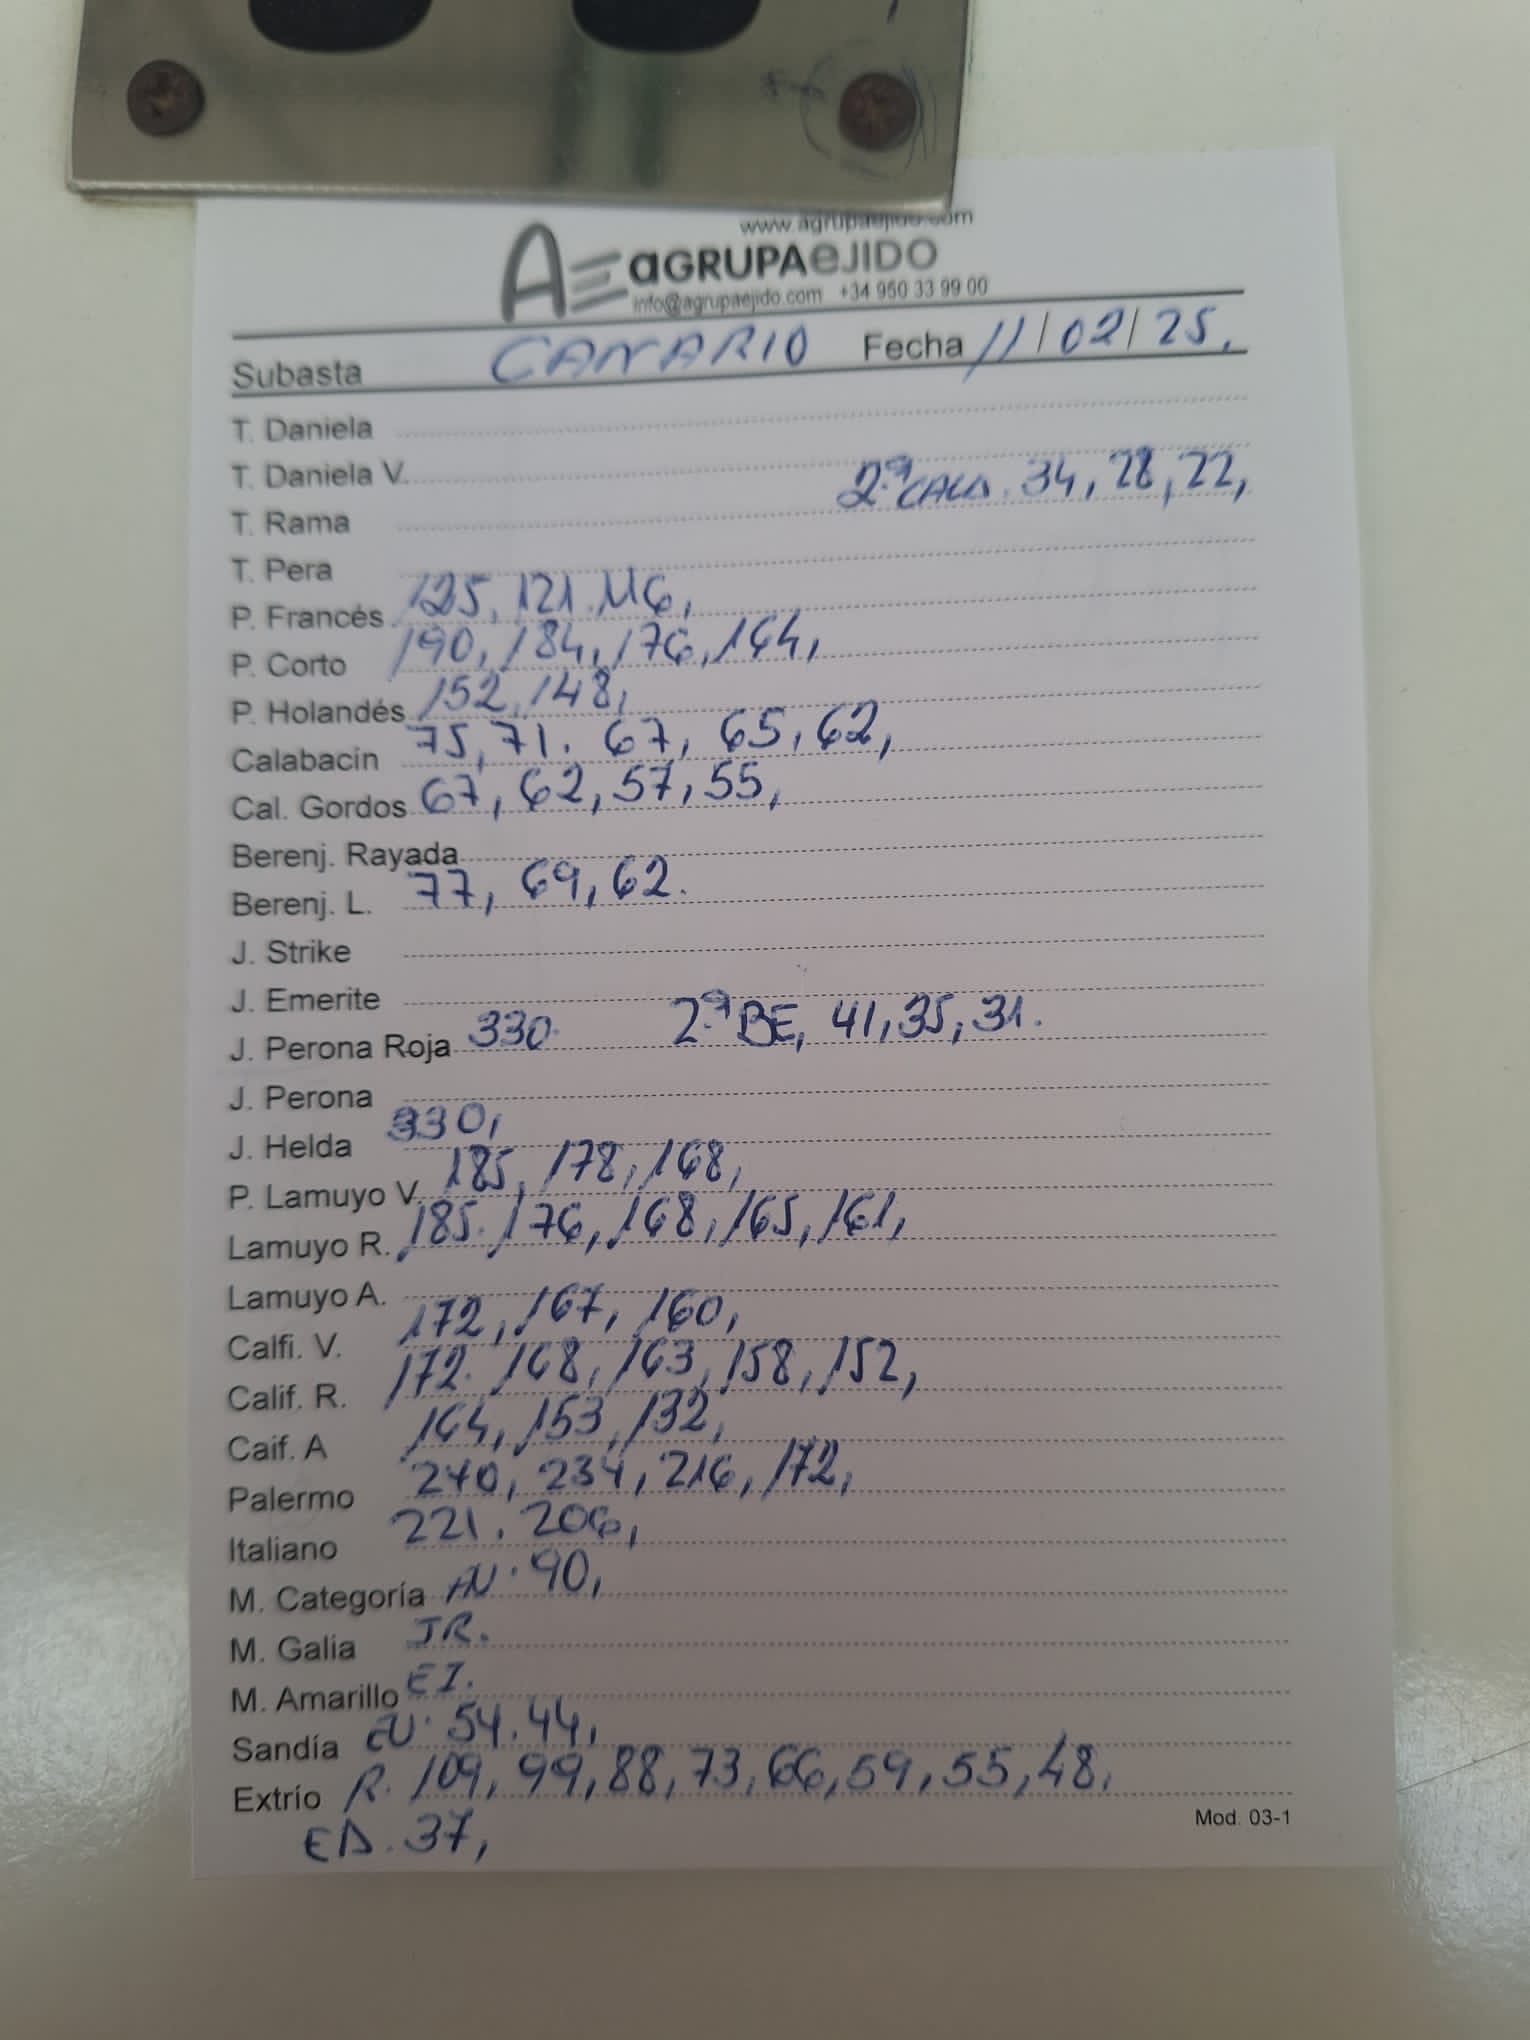 www.agrupaejido.com
AE aGRUPAeJIDO
info@agrupaejido.com +34 950 33 99 00
Subasta CANARIO Fecha 11/02/25.
T. Daniela
T. Daniela V.
2ª CALA. 34, 28, 22,
T. Rama
T. Pera
P. Francés 125, 121. 116,
P. Corto 190, 184, 176, 164,
P. Holandés 152, 148,
Calabacín 75, 71. 67, 65, 62,
Cal. Gordos 67, 62, 57, 55,
Berenj. Rayada
Berenj. L. 77, 69, 62.
J. Strike
J. Emerite
J. Perona Roja 330. 2ª BE, 41, 35, 31.
J. Perona
J. Helda 330,
P. Lamuyo V. 185, 178, 168,
Lamuyo R. 185. 176, 168, 165, 161,
Lamuyo A.
Calfi. V. 172, 167, 160,
Calif. R. 172. 168, 163, 158, 152,
Caif. A 164, 153, 132,
Palermo 240, 234, 216, 172,
Italiano 221. 206,
M. Categoría AV. 90,
M. Galia JR.
M. Amarillo EI.
Sandía EV. 54. 44,
Extrío R. 109, 99, 88, 73, 66, 59, 55, 48,
ED. 37,
Mod. 03-1